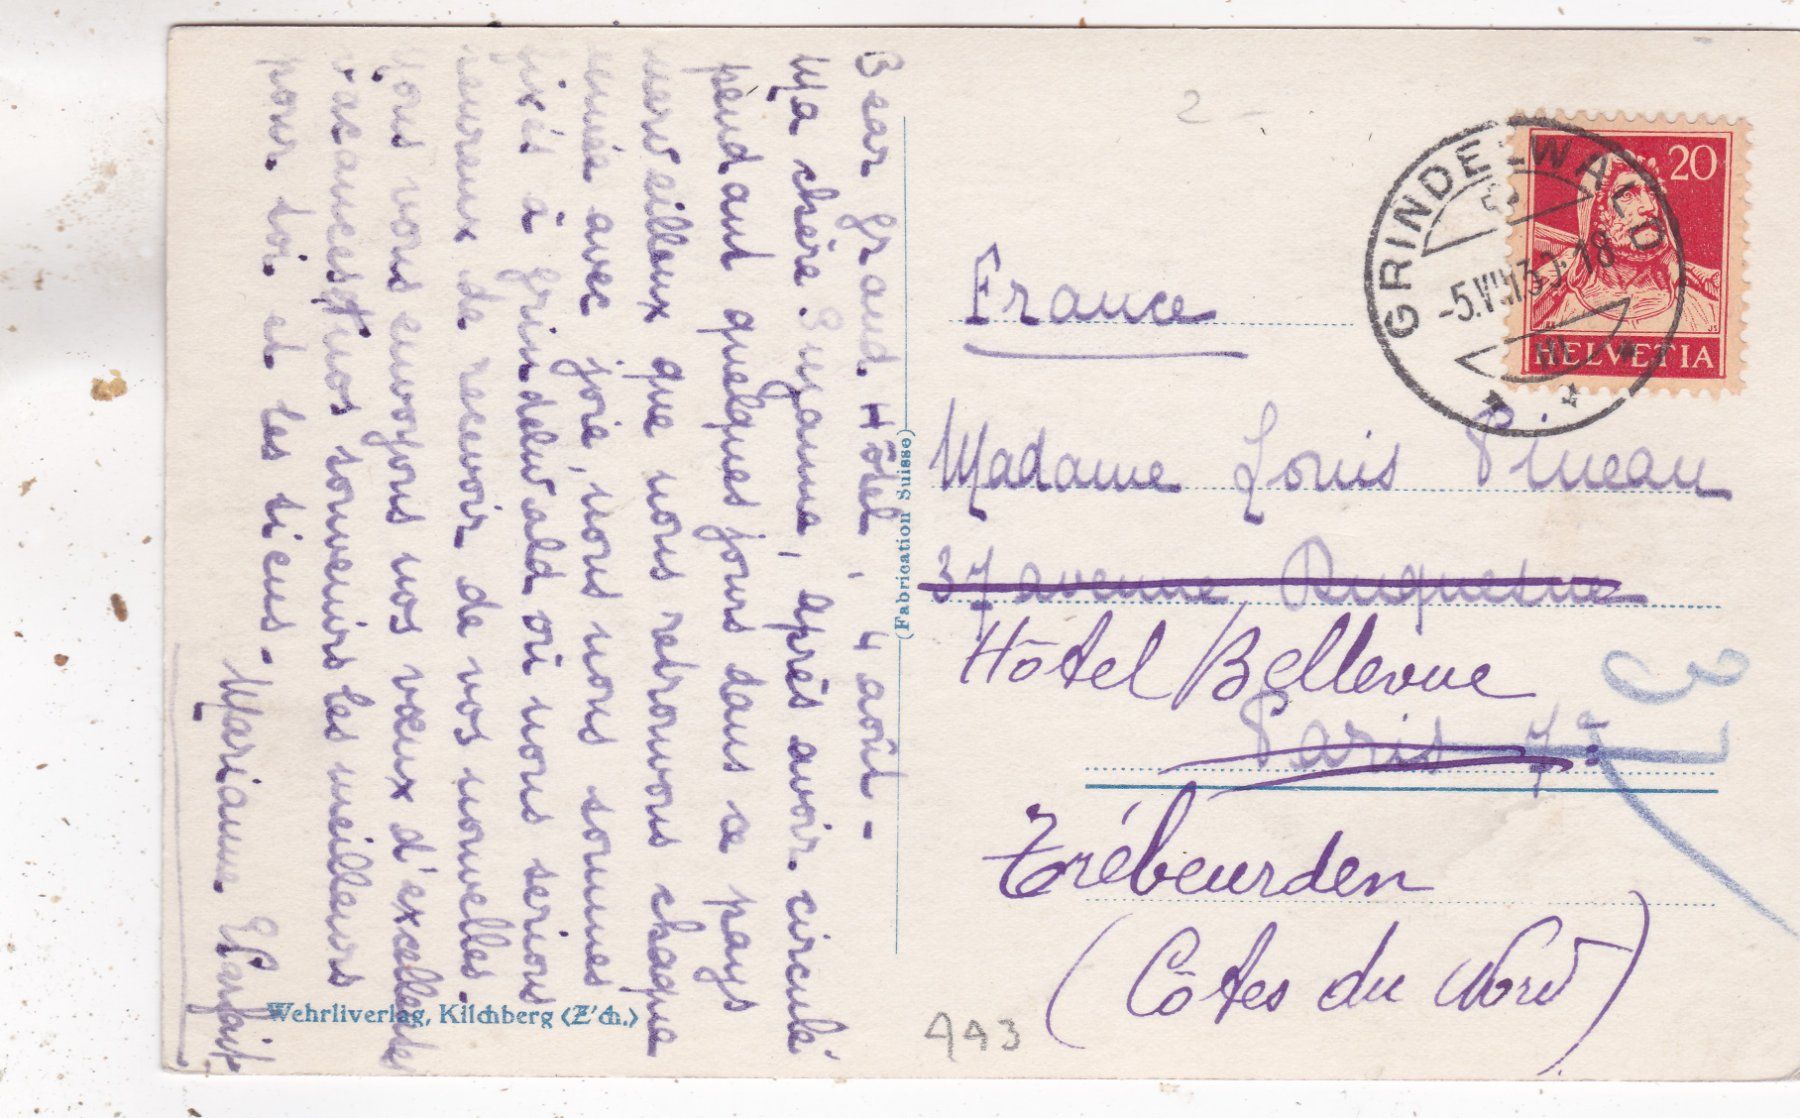 Bear Grand Hôtel, 4 août -
Ma chère Suzanne, après avoir circulé
pendant quelques jours dans ce pays
merveilleux que nous retrouvons chaque
année avec joie, nous nous sommes
fixés à Grindelwald où nous serions
heureux de recevoir de vos nouvelles.
Nous vous envoyons nos vœux d'excellentes
vacances et nos souvenirs les meilleurs
pour toi et les tiens -
Marianne Parfait
Wehrliverlag, Kilchberg (Z'ch.)
(Fabrication Suisse)
2 -
GRINDELWALD
-5.VIII 30-18
20
HELVETIA
France
Madame Louis Pineau
37 avenue Duquesne
Hôtel Bellevue
Paris 7e
Trébeurden
(Côtes du Nord)